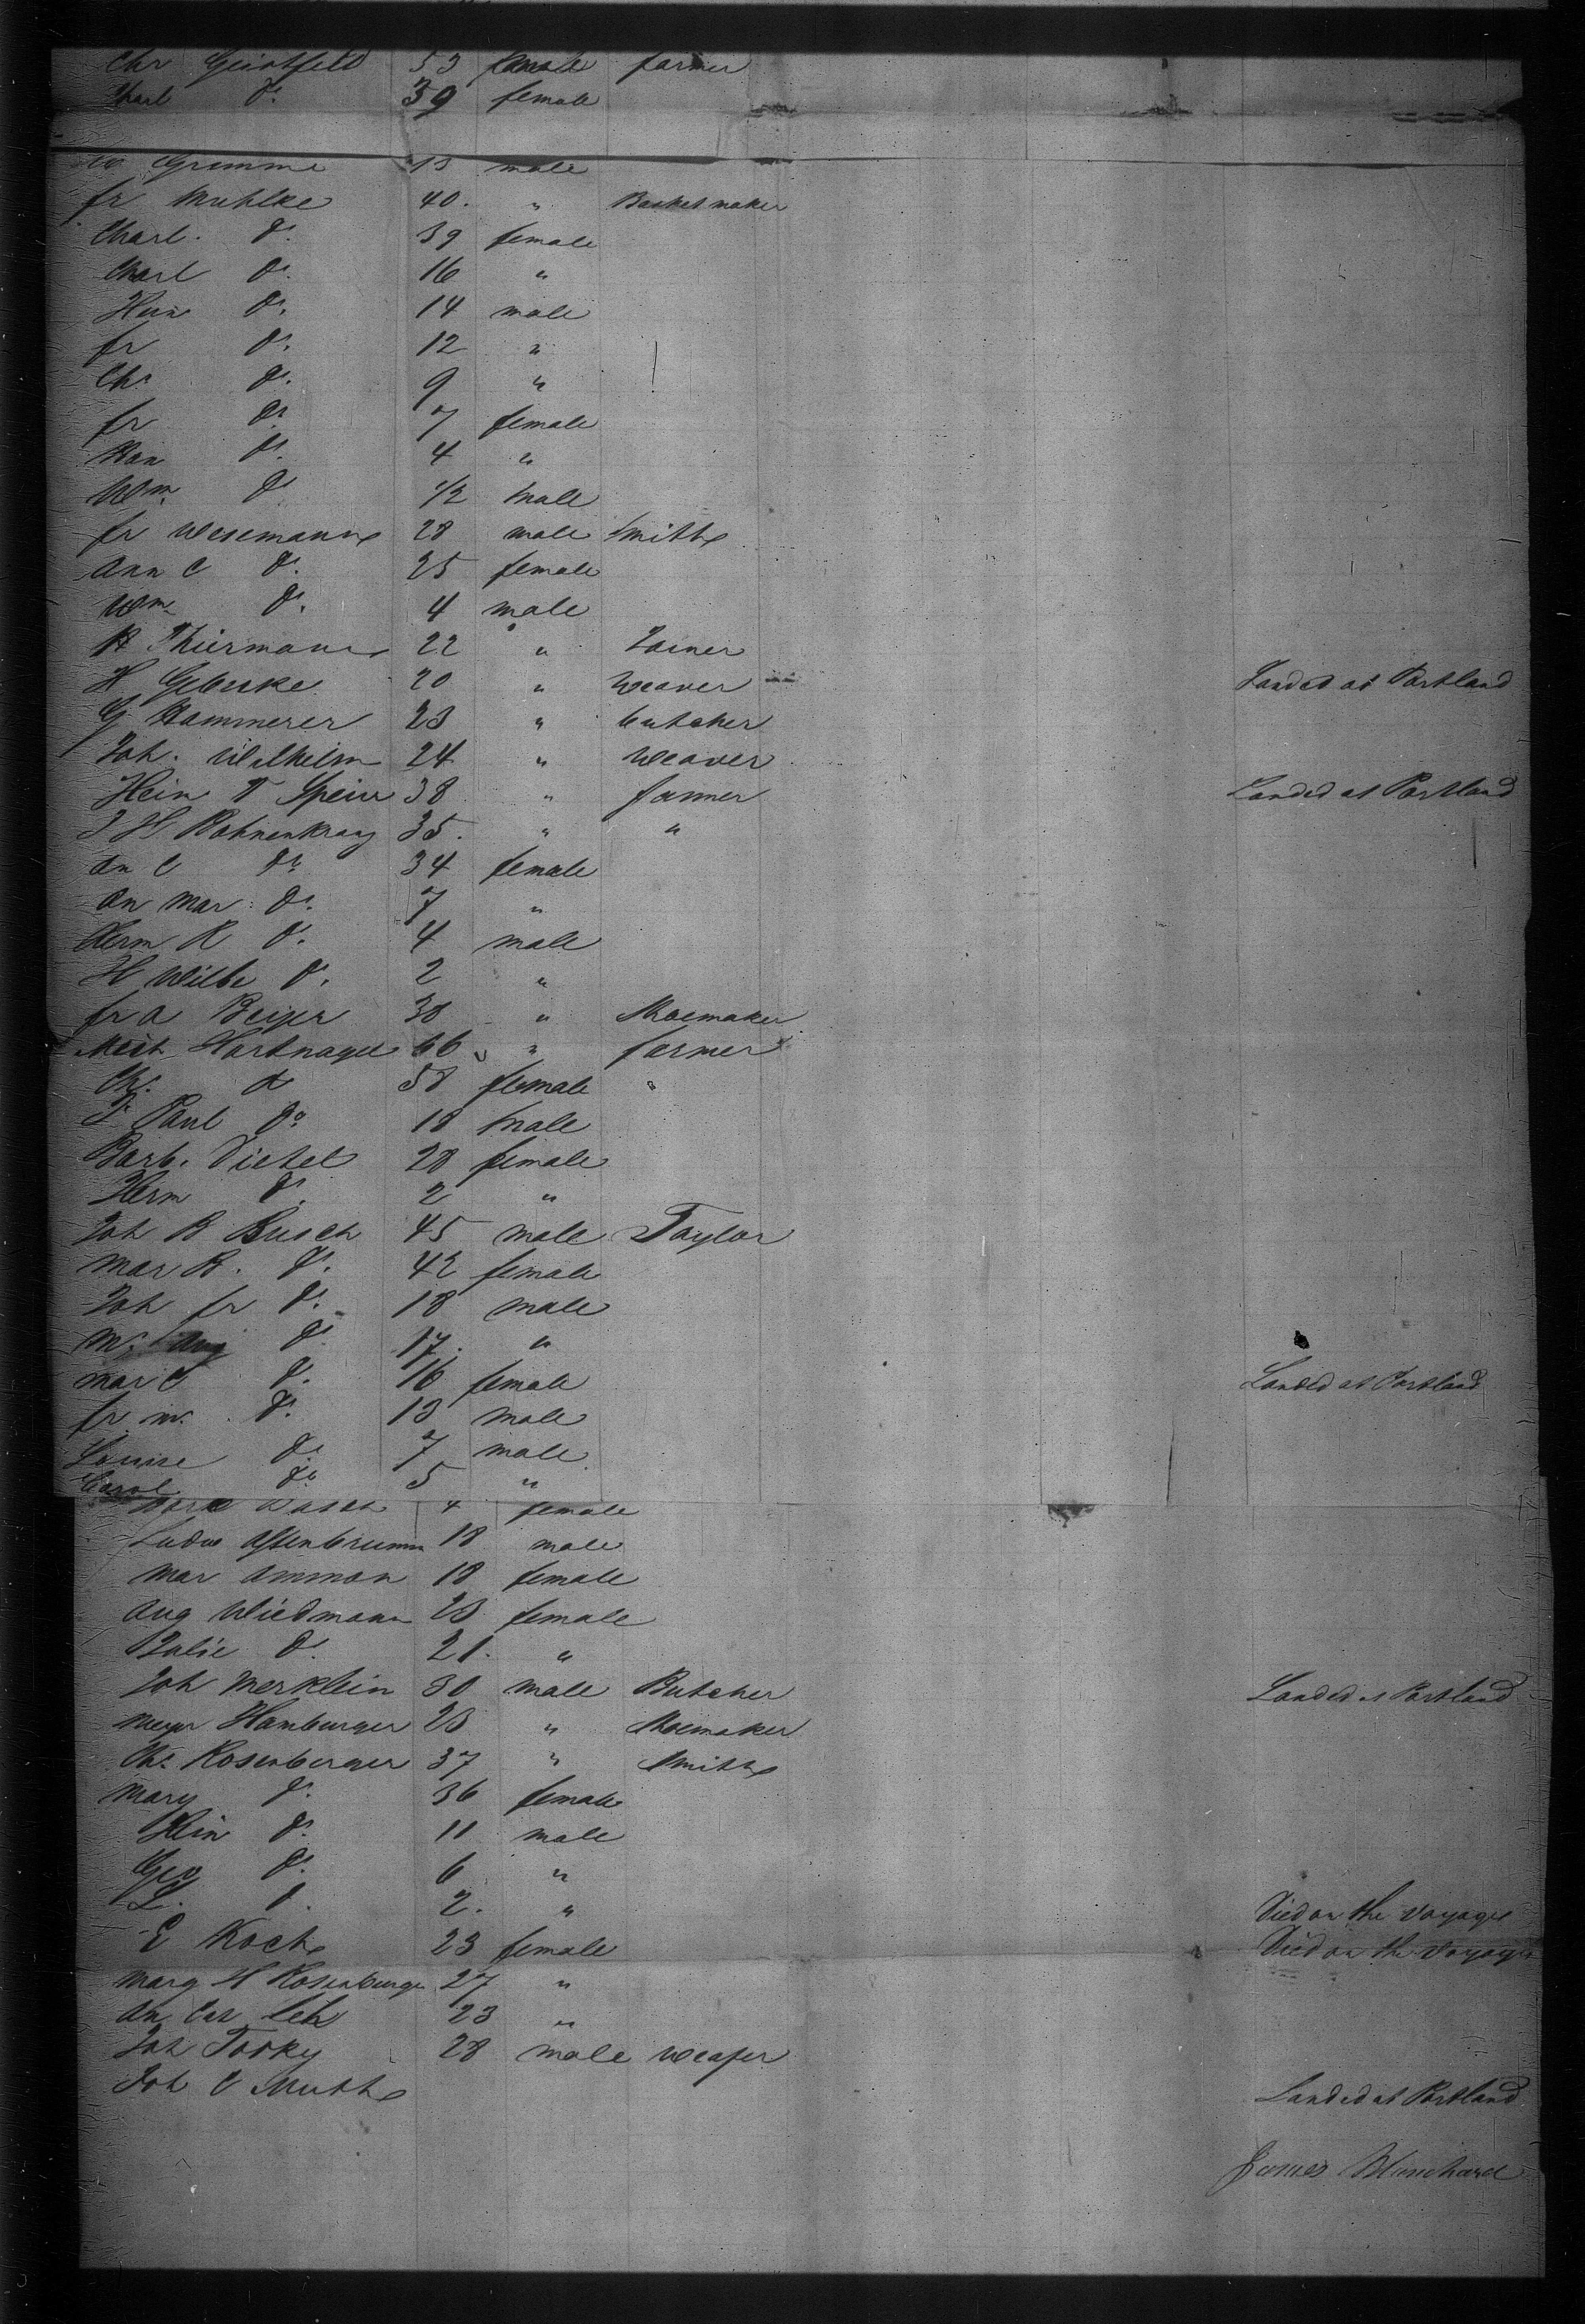 Chr Geistfeld 53 female farmer
Charl Do. 39 female
Grimme 13 male
fr Muhlke 40. " Basket maker
Charl. Do. 39 female
Charl Do. 16 "
Hein Do. 14 male
fr Do. 12 "
Chr Do. 9 "
fr Do. 7 female
Han Do. 4 "
Wm. Do 1/2 male
fr Wesemann 28 male Smith
Ann C Do. 25 female
Wm Do. 4 male
H Thiermann 22 " Joiner
H Gebuke 20 " Weaver Landed at Portland
G Hammerer 23 " butcher
Joh. Wilhelm 24 " Weaver
Hein Speier 38 " farmer Landed at Portland
J H Rohnenkranz 35. " "
An C Do. 34 female
An Mar Do. 7 "
Herm R Do. 4 male
H Wilbe Do. 2 "
fr A Beiyer 38 " Shoemaker
Mich Hartnagel 66 " farmer
Chr. Do 58 female
J Paul Do 18 male
Barb. Dietel 28 female
Herm Do. 2 "
Joh B Busch 45 male Taylor
Mar B. Do. 42 female
Joh fr Do. 18 male
Aug Do. 17. "
Mar C Do. 16 female Landed at Portland
fr m. Do. 13 male
Louise Do. 7 male
Carol Do. 5 "
Busch 4 female
Ludw Assenbrumm 18 male
Mar Amman 18 female
Aug Wiedmann 23 female
Julie Do. 21. "
Joh Merklein 30 male Butcher Landed at Portland
Meyer Hamburger 23 " Shoemaker
Chr. Rosenberger 37 " Smith
Mary Do. 36 female
Hein Do. 11 male
Geo Do. 6 "
L. Do. 2. " Died on the Voyage
E Koch 23 female Died on the Voyage
Marg H Rosenberger 27 "
An Cat 23 "
Joh Torky 28 male weafer
Joh C Muth Landed at Portland
James Blanchard